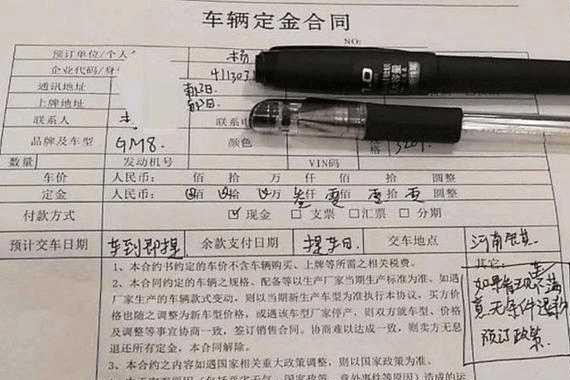 车辆定金合同
NO:
预订单位/个人 杨
企业代码/身 411303
通讯地址 朝阳.
上牌地址 朝阳.
联系人 联系电
品牌及车型 GM8. 颜色
数量 发动机号 VIN码
车价 人民币: 佰 拾 万 仟 佰 拾 圆整
定金 人民币: 佰 拾 万 仟 零 佰 零 拾 零 圆整
付款方式 ☑现金 □支票 □汇票 □分期
预计交车日期 车到即提 余款支付日期 提车日. 交车地点 河南
其它:
1、本合约书约定的车价不含车辆购买、上牌等所需之相关税费。
2、本合同约定的车辆之规格、配备等以生产厂家当期生产标准为准。如遇
厂家生产的车辆款式变动,则以当期新生产车型为准执行本协议。买方价
格也随之调整为新车型价格,或遇该车型厂家停产,则双方就车型、价格
及调整等事宜协商一致,签订销售合同。协商难以达成一致,则卖方无息
退还所有定金,本合同解除。
3、本合约之内容如遇国家相关重大政策调整,则以国家政策为准。
如果有不满
意,无条件退
预订政策.
1.0